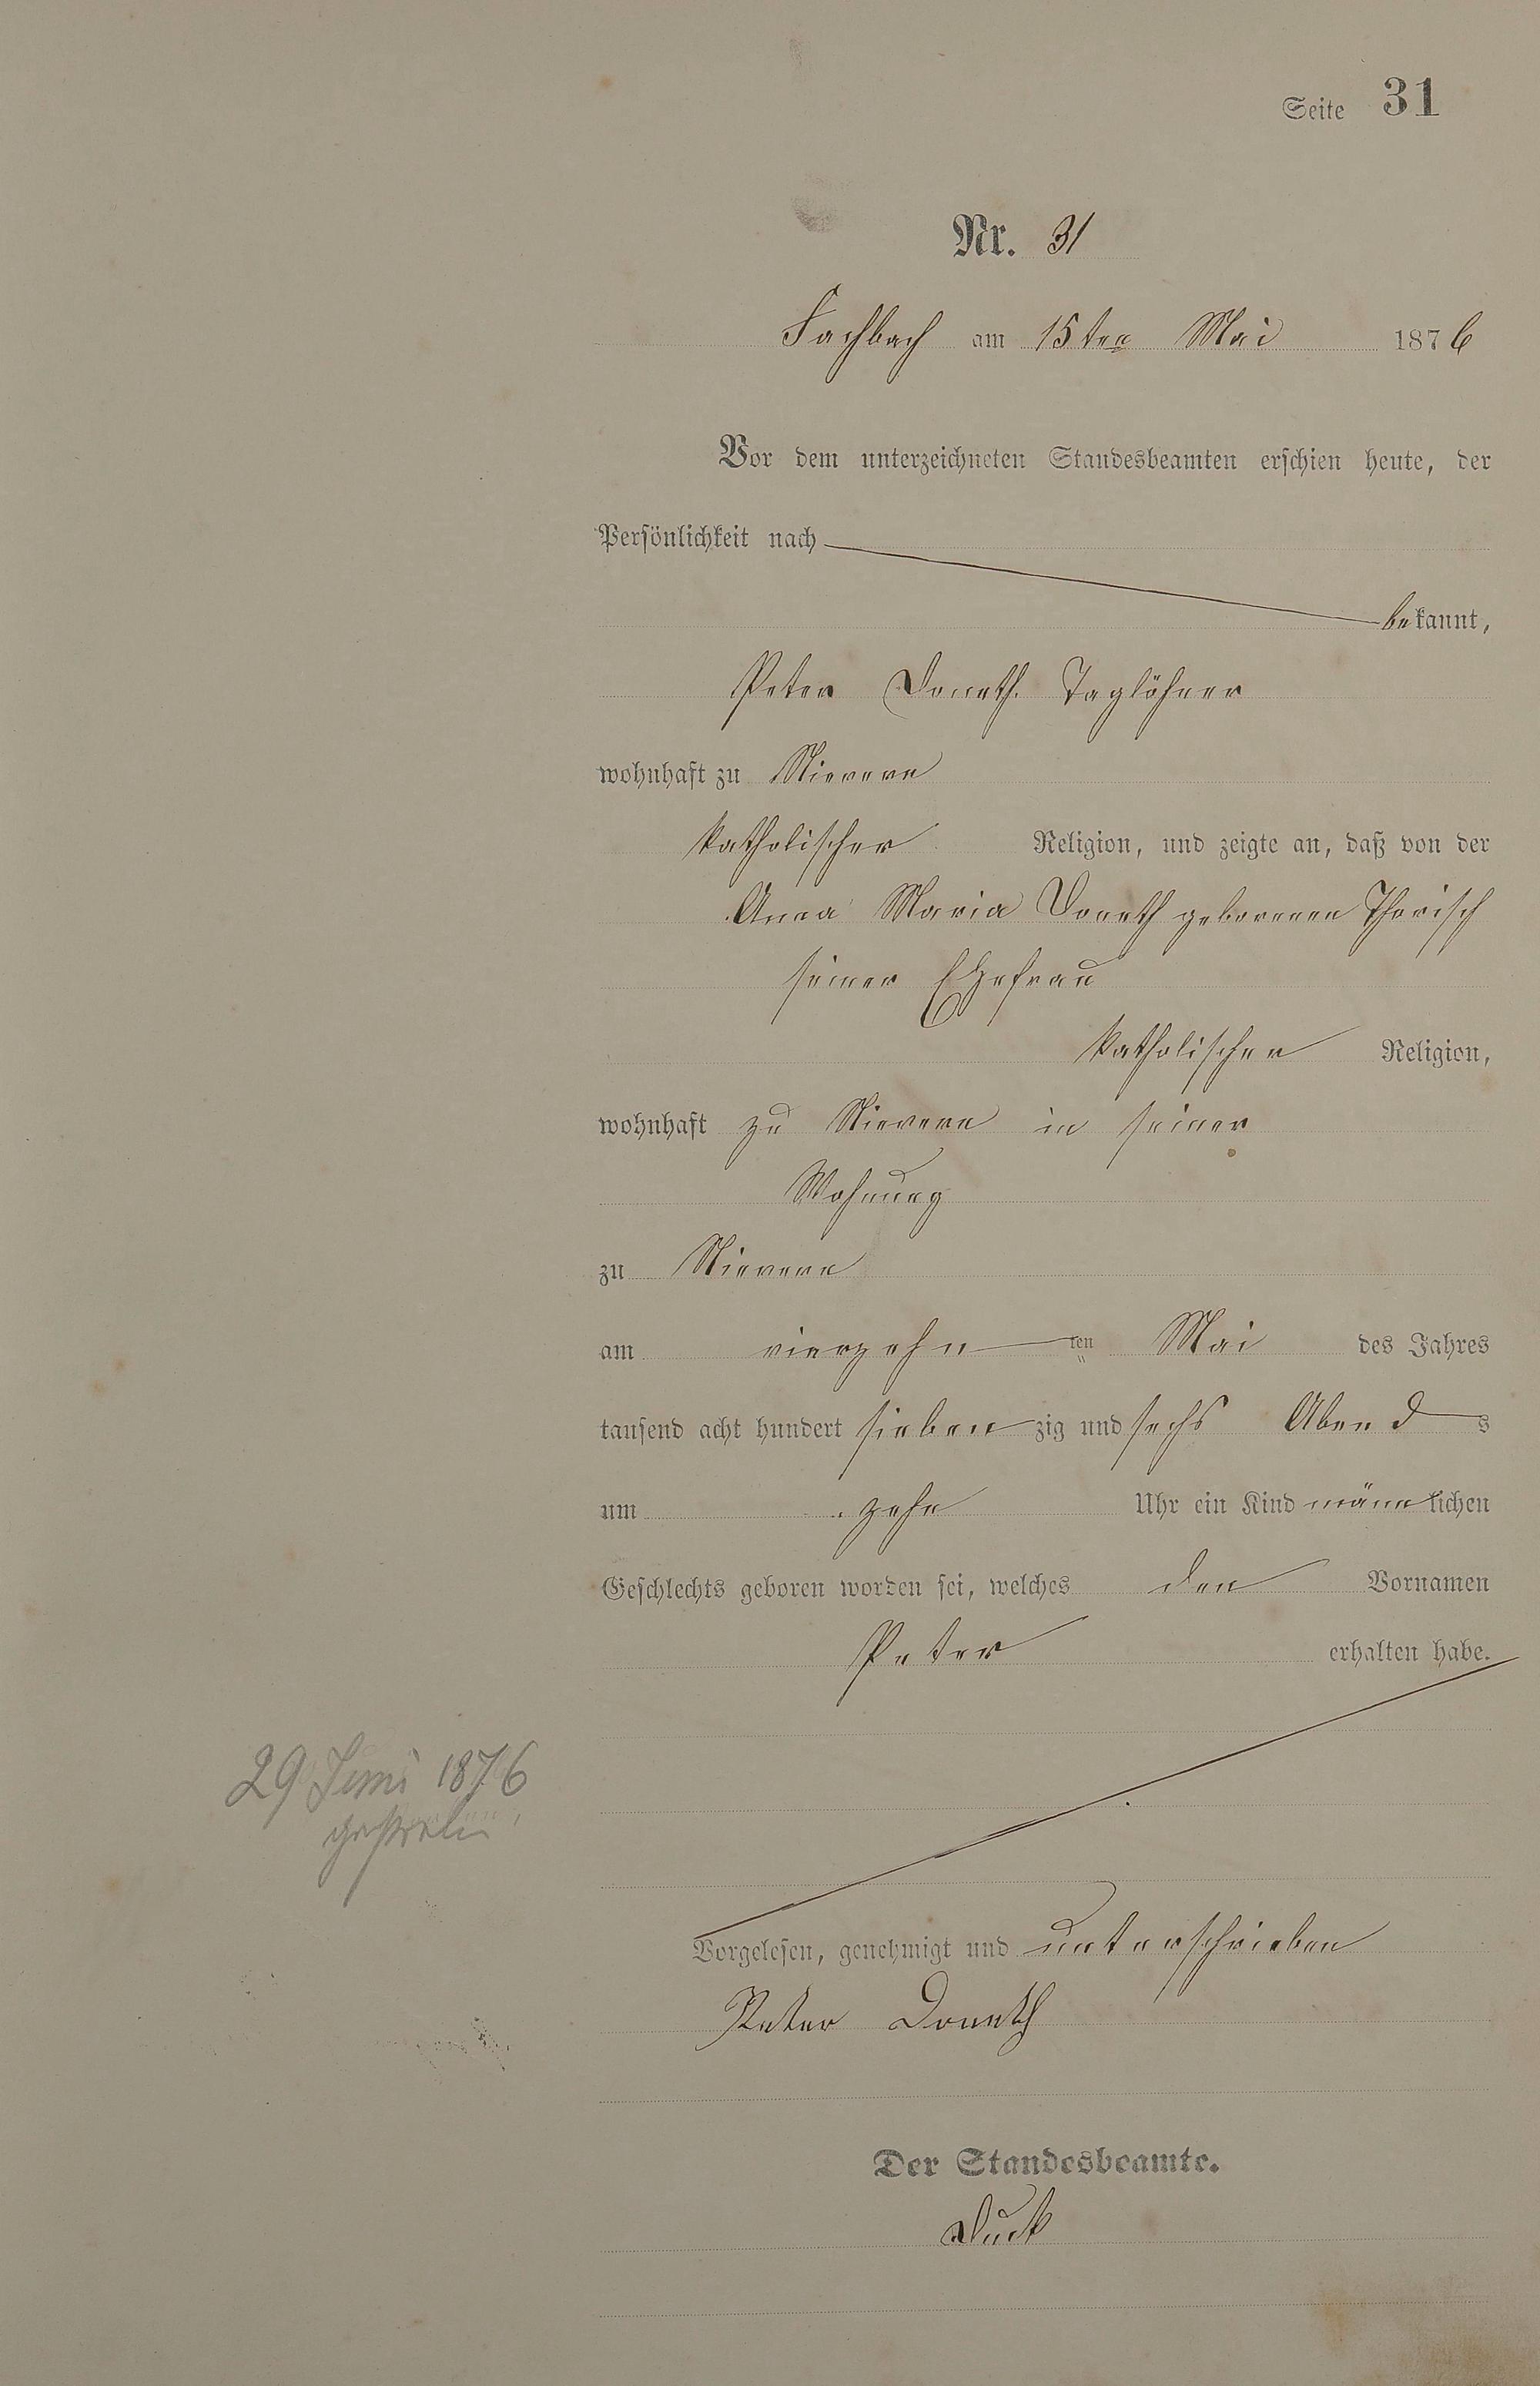 Seite 31
Nr. 31
Fachbach am 15ten Mai 1876
Vor dem unterzeichneten Standesbeamten erschien heute, der
Persönlichkeit nach
bekannt,
Peter Doneth. Taglöhner
wohnhaft zu Nievern
katholischer Religion, und zeigte an, daß von der
Anna Maria Doneth geborenen Theisch
seiner Ehefrau
katholischer Religion,
wohnhaft zu Nievern in seiner
Wohnung
zu Nievern
am vierzehnten Mai des Jahres
tausend acht hundert siebenzig und sechs Abends
um zehn Uhr ein Kind männlichen
Geschlechts geboren worden sei, welches den Vornamen
Peter erhalten habe.
29 Juni 1876
gestorben
Vorgelesen, genehmigt und unterschrieben
Peter Doneth
Der Standesbeamte.
Duck